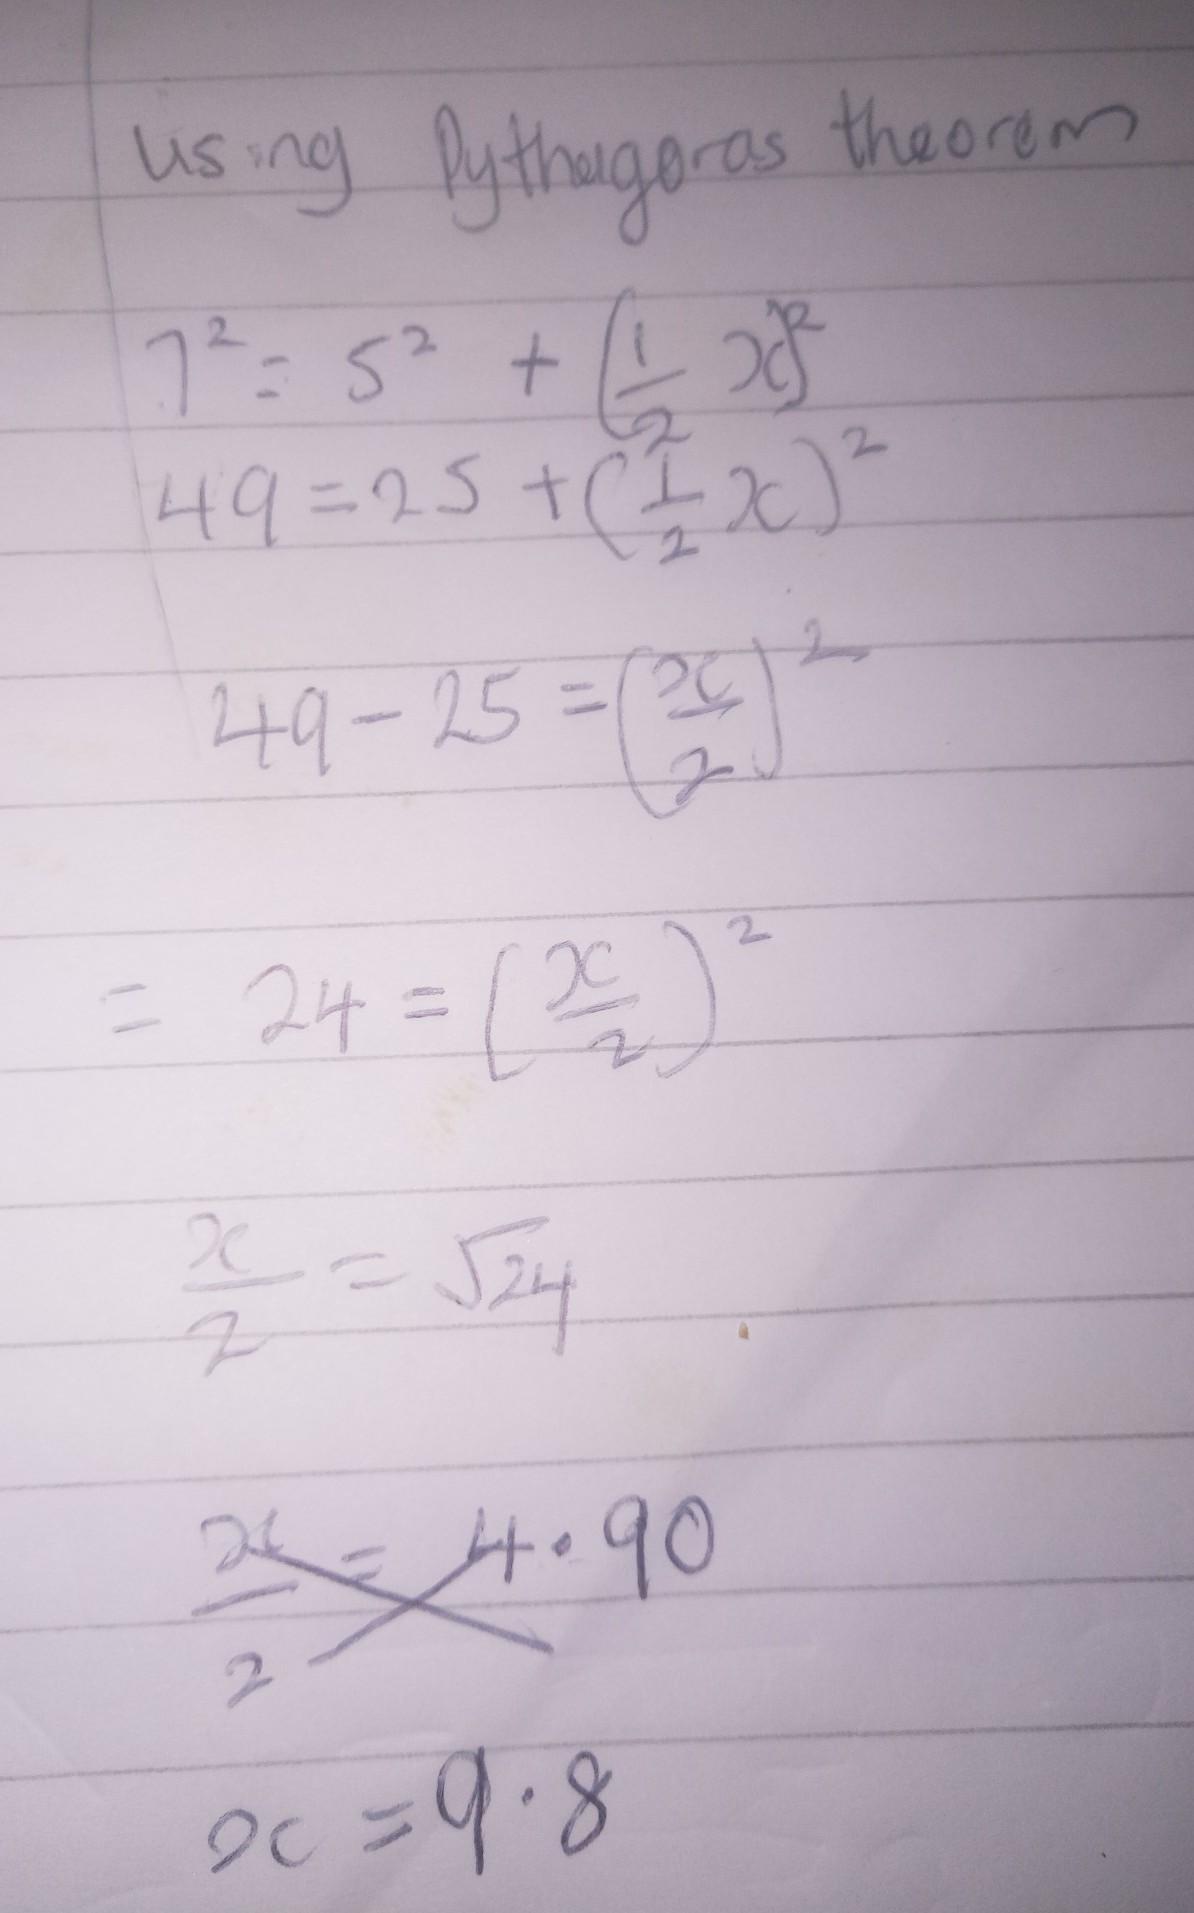 using Pythagoras theorem
7² = 5² + (1/2 x)²
49 = 25 + (1/2 x)²
49 - 25 = (x/2)²
= 24 = (x/2)²
x/2 = √24
x/2 = 4.90
x = 9.8